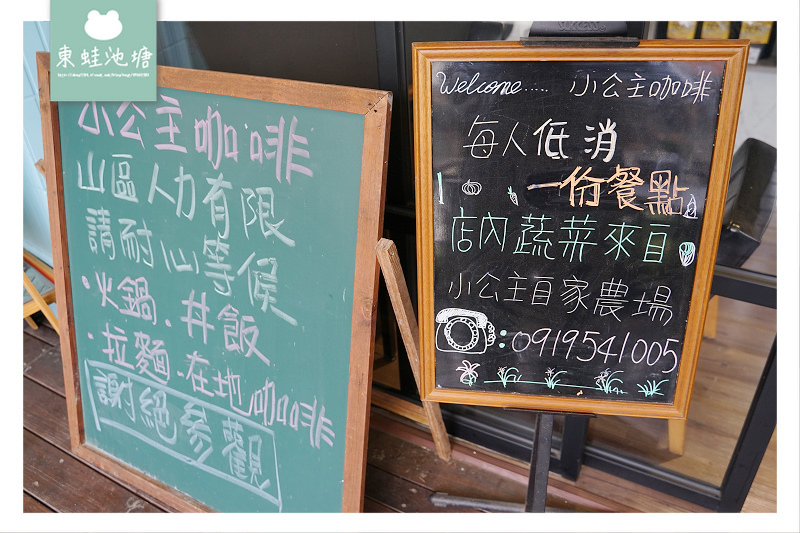 東蛙池塘
小公主咖啡
山區人力有限
請耐心等候
·火鍋·丼飯
·拉麵·在地咖啡
謝絕參觀
Welcome..... 小公主咖啡
每人低消
一份餐點
店內蔬菜來自
小公主自家農場
:0919541005